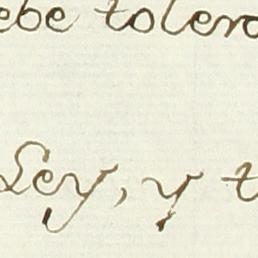 ebe toler
Ley, y t